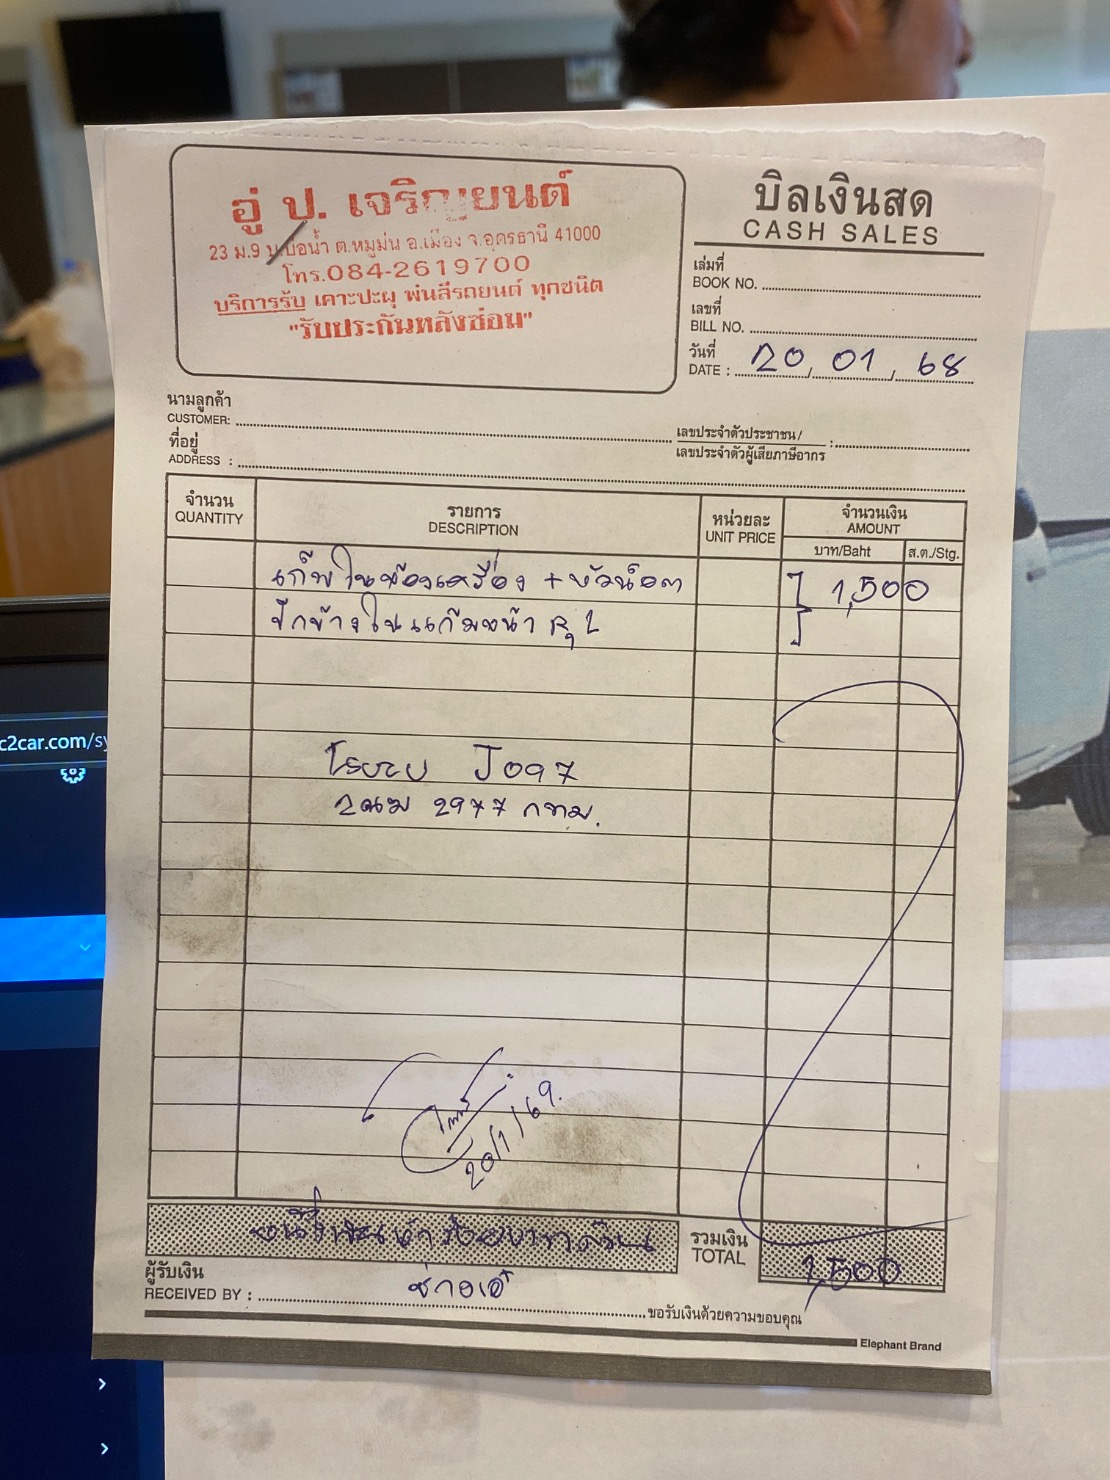 อู่ ป. เจริญยนต์
23 ม.9 บ.บ่อน้ำ ต.หมูม่น อ.เมือง จ.อุดรธานี 41000
โทร.084-2619700
บริการรับ เคาะปะผุ พ่นสีรถยนต์ ทุกชนิด
"รับประกันหลังซ่อม"
บิลเงินสด
CASH SALES
เล่มที่
BOOK NO.
เลขที่
BILL NO.
วันที่
DATE : 20, 01, 68
นามลูกค้า
CUSTOMER:
เลขประจำตัวประชาชน/
เลขประจำตัวผู้เสียภาษีอากร :
ที่อยู่
ADDRESS :
จำนวน
QUANTITY
รายการ
DESCRIPTION
หน่วยละ
UNIT PRICE
จำนวนเงิน
AMOUNT
บาท/Baht
ส.ต./Stg.
เก็บในห้องเครื่อง + หัวน็อต 1,500
ในแก้มหน้า R, L
J097
2977 กทม.
20/1/69.
รวมเงิน
TOTAL
1,500
ผู้รับเงิน
RECEIVED BY : ช่างเอ๋
ขอรับเงินด้วยความขอบคุณ
Elephant Brand
c2car.com/sy